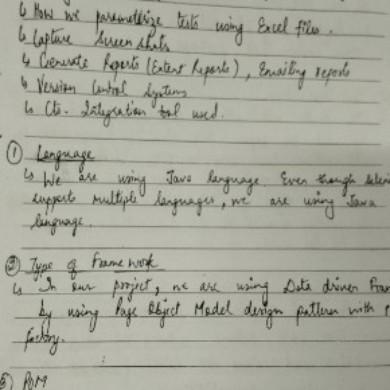 ↳ How we parametrize tests using Excel files.
↳ Capture Screen shots
↳ Generate Reports (Extent Reports), Emailing reports
↳ Version Control Systems
↳ Integration tool used.
① Language
↳ We are using Java language. Even though
supports multiple languages, we are using Java
language.
② Type of Framework
↳ In our project, we are using Data driven Fram
by using Page Object Model design pattern with P
factory.
③ POM